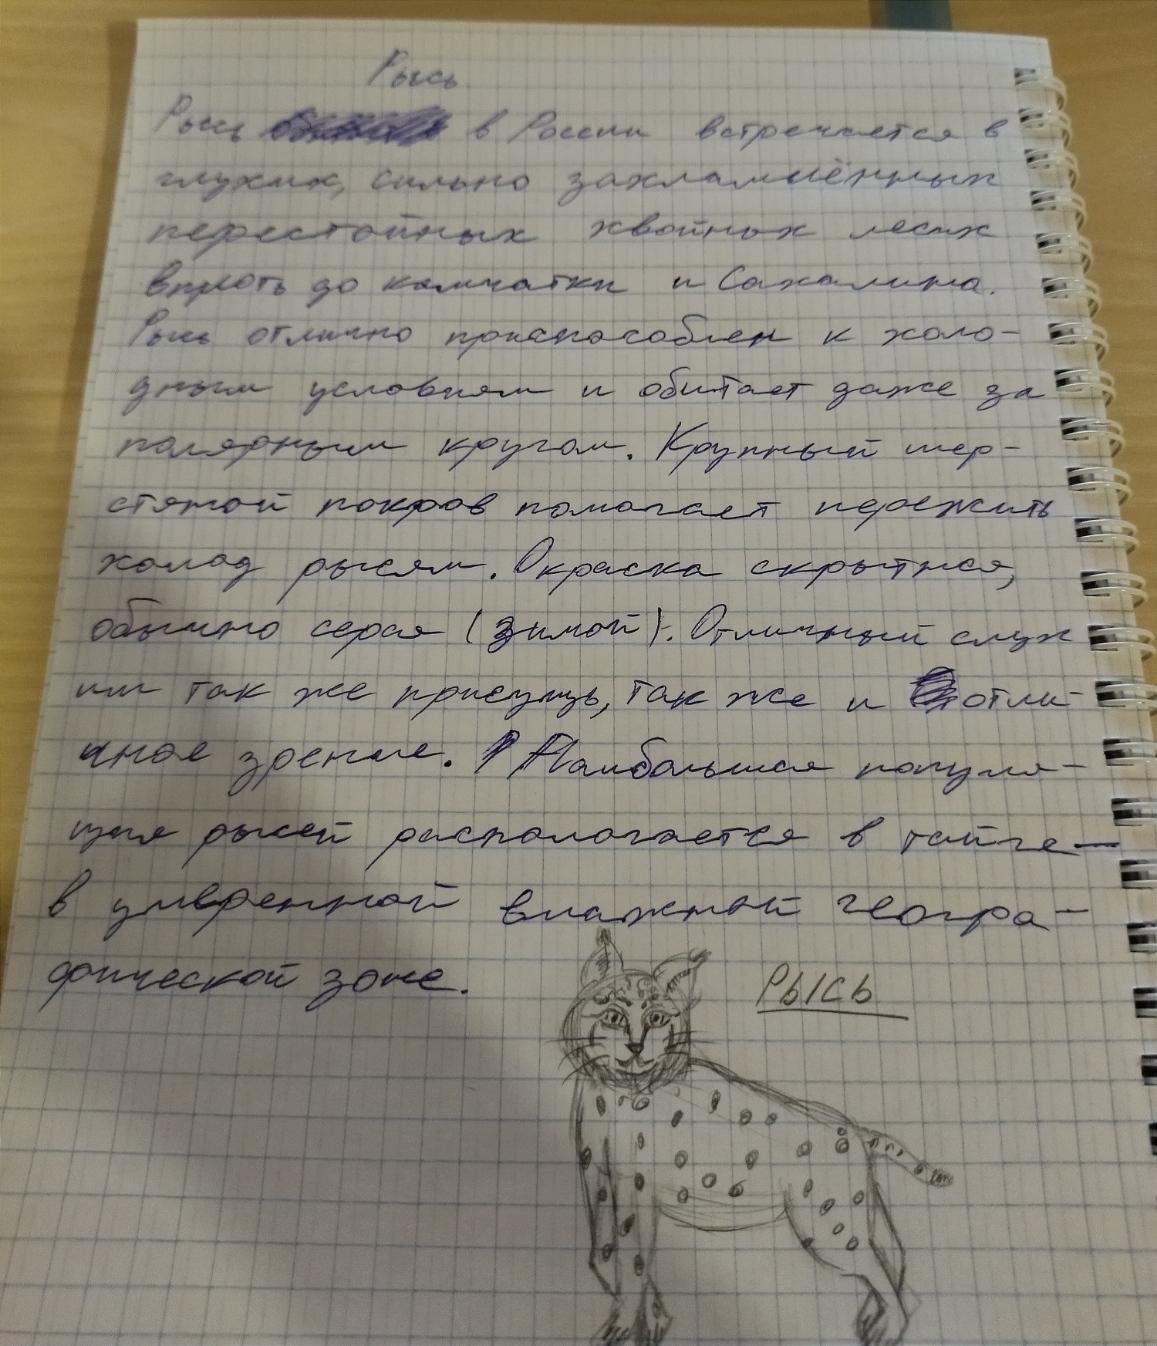 Рысь.
Рысь в России встречается в
глухих, сильно захламлённых
перестойных хвойных лесах
вплоть до камчатки и Сахалина.
Рысь отлично приспособлен к холо-
дным условиям и обитает даже за
полярным кругом. Крупный шер-
стяной покров помогает пережить
холод рысям. Окраска скрытная,
обычно серая (зимой). Отличный слух
им так же присущь, так же и отли-
чное зрение. Наибольшая популя-
ция рысей распологается в тайге—
в умеренной влажной геогра-
фической зоне.
РЫСЬ